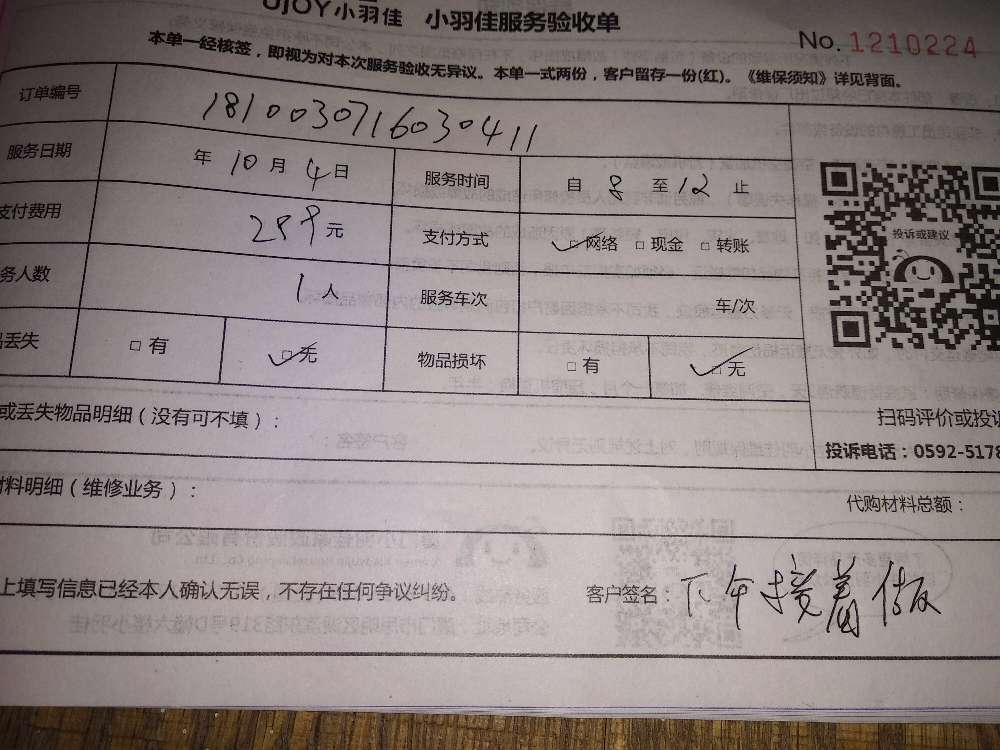 UJOY小羽佳 小羽佳服务验收单
No. 1210224
本单一经核签，即视为对本次服务验收无异议。本单一式两份，客户留存一份(红)。《维保须知》详见背面。
订单编号 1810030716030411
服务日期 年 10 月 4 日 服务时间 自 8 至 12 止
支付费用 289 元 支付方式 □ 网络 □ 现金 □ 转账
投诉或建议
务人数 1 人 服务车次 车/次
丢失 □ 有 □ 无 物品损坏 □ 有 □ 无
或丢失物品明细（没有可不填）：
扫码评价或投诉
投诉电话：0592-5178
材料明细（维修业务）：
代购材料总额：
上填写信息已经本人确认无误，不存在任何争议纠纷。 客户签名：下午接着做